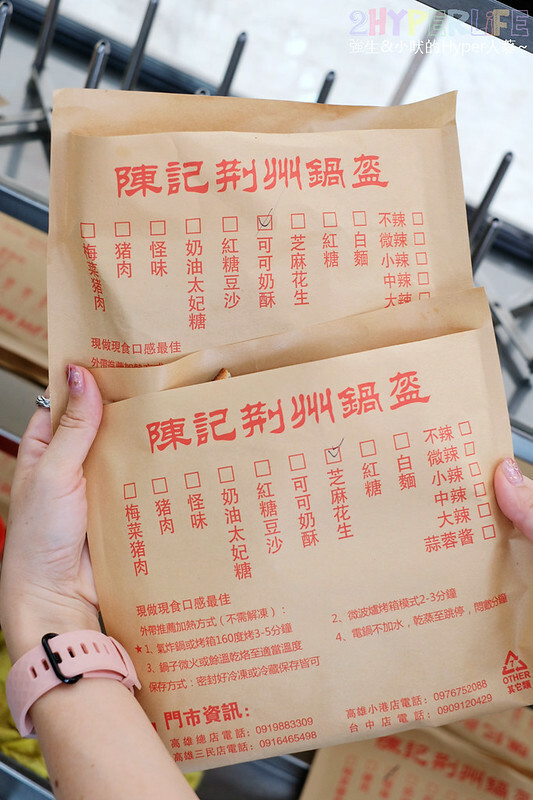 2HYPERLIFE
強生&小吠的Hyper人蔘~
陳記荆州鍋盔
梅菜猪肉
猪肉
怪味
奶油太妃糖
紅糖豆沙
可可奶酥
芝麻花生
紅糖
白麵
不辣
微辣
小辣
中辣
大辣
現做現食口感最佳
陳記荆州鍋盔
梅菜猪肉
猪肉
怪味
奶油太妃糖
紅糖豆沙
可可奶酥
芝麻花生
紅糖
白麵
不辣
微辣
小辣
中辣
大辣
蒜蓉酱
現做現食口感最佳
外帶推薦加熱方式（不需解凍）：
★1、氣炸鍋或烤箱160度烤3-5分鐘
2、微波爐烤箱模式2-3分鐘
3、鍋子微火或餘溫乾烙至適當溫度
4、電鍋不加水，乾蒸至跳停，悶數分鐘
保存方式：密封好冷凍或冷藏保存皆可
門市資訊：
高雄總店電話：0919883309
高雄三民店電話：0916465498
高雄小港店電話：0976752088
台中店電話：0909120429
7
OTHER
其它類